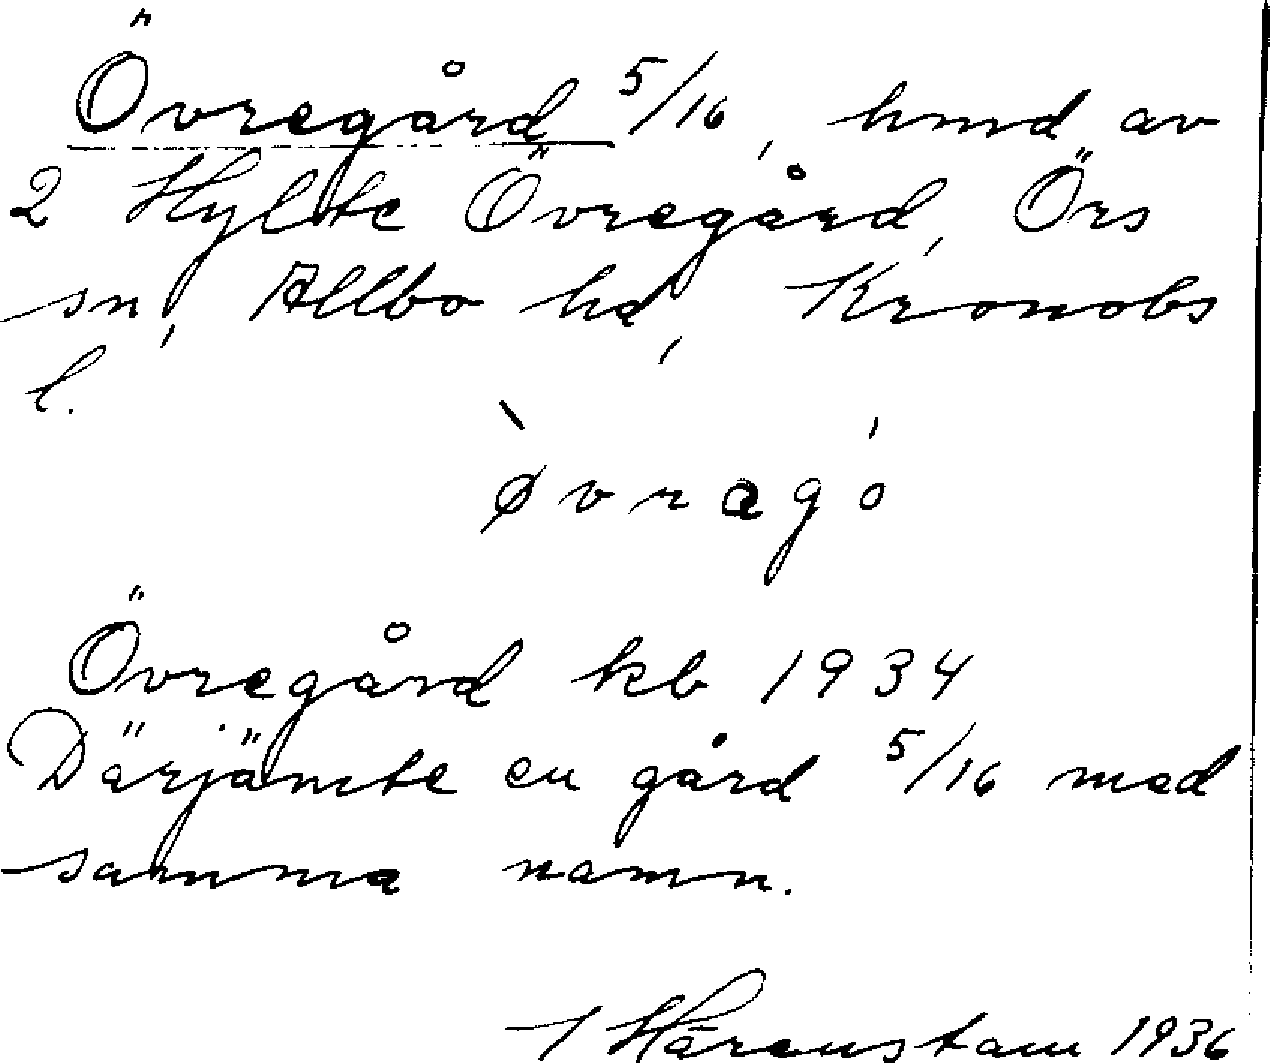 Övregård 5/16, hmd av
2 Hylte Övregård, Örs
sn, Allbo hd, Kronobs
l.
̀øvrago̍
Övregård kb 1934
Därjämte en gård 5/16 med
samma namn.
I Härenstam 1936